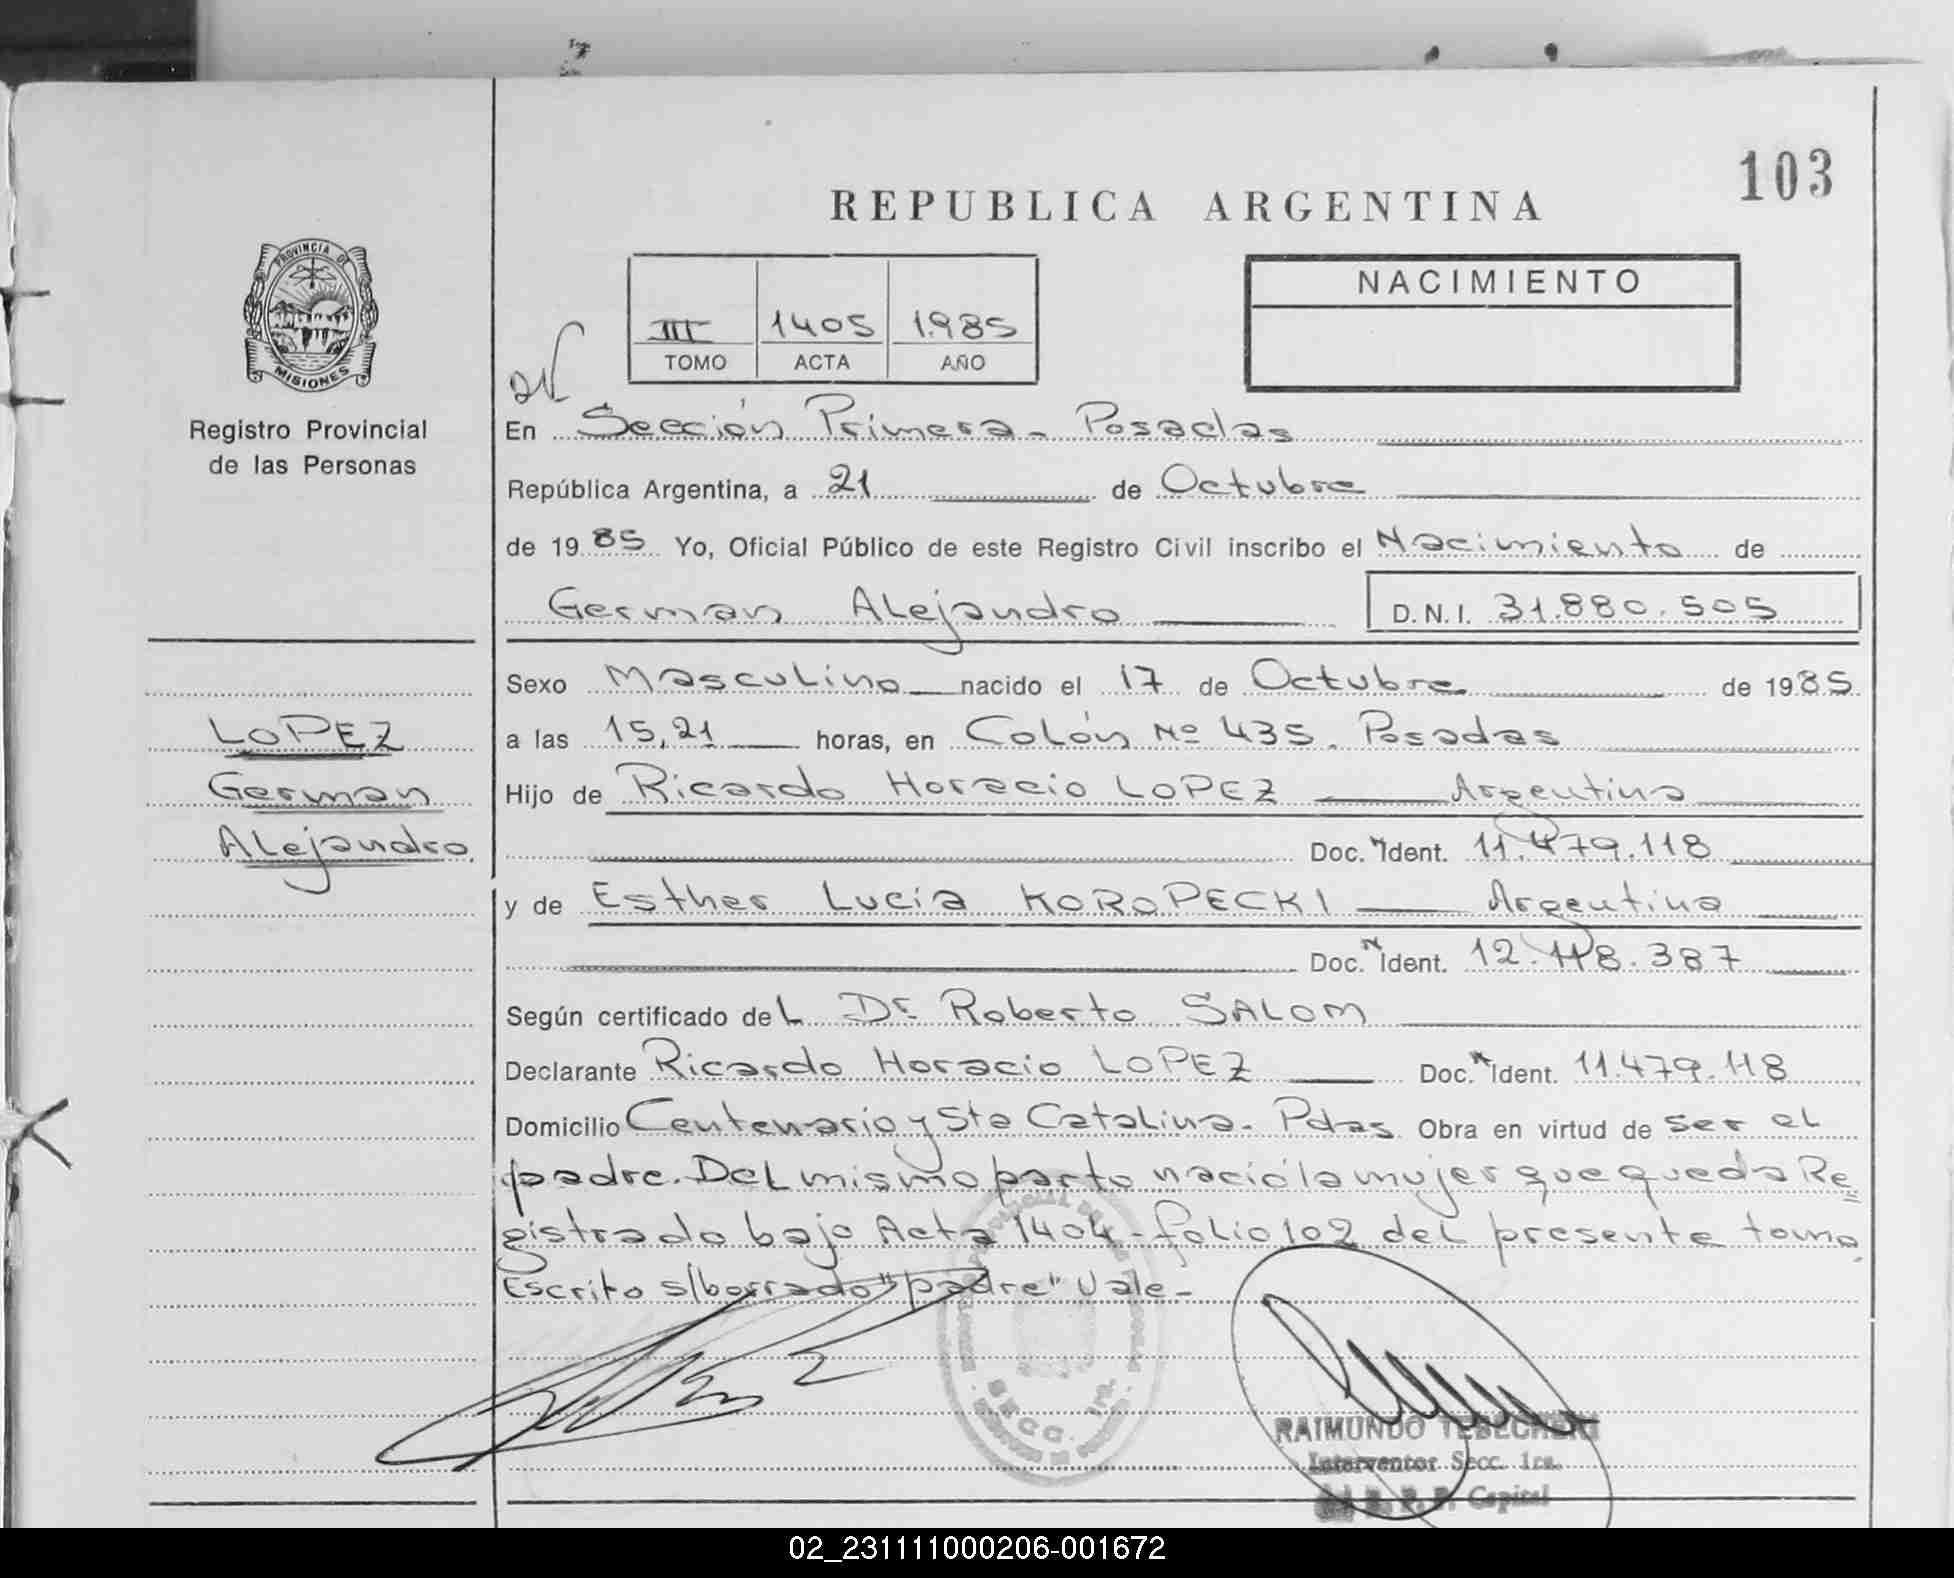 103
REPUBLICA ARGENTINA
PROVINCIA DE
MISIONES
Registro Provincial
de las Personas
III 1405 1.985
TOMO ACTA AÑO
NACIMIENTO
En Sección Primera - Posadas
República Argentina, a 21 de Octubre
de 1985 Yo, Oficial Público de este Registro Civil inscribo el Nacimiento de
German Alejandro D.N.I. 31.880.505
LOPEZ
German
Alejandro
Sexo Masculino nacido el 17 de Octubre de 1985
a las 15,21 horas, en Colón Nº 435. Posadas
Hijo de Ricardo Horacio LOPEZ Argentino
Doc. N Ident. 11.479.118
y de Esther Lucía KOROPECKI Argentina
Doc. N Ident. 12.118.387
Según certificado del Dr. Roberto SALOM
Declarante Ricardo Horacio LOPEZ Doc. N Ident. 11.479.118
Domicilio Centenario y Sta Catalina - Pdas Obra en virtud de ser el
padre. Del mismo parto nació la mujer que queda Re=
gistrado bajo Acta 1404 - folio 102 del presente tomo.
Escrito s/borrado "padre" Vale -
SECC. 1ra.
RAIMUNDO
Interventor Secc. 1ra.
del R. P. P. Capital
02_231111000206-001672